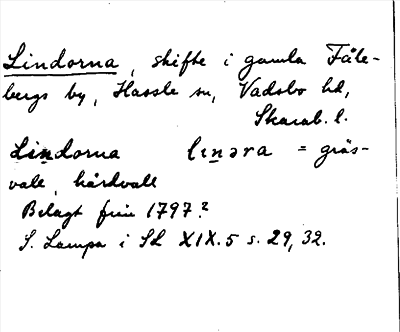 Lindorna, skifte i gamla Fåle-
bergs by, Hassle sn, Vadsbo hd,
Skarab. l.
Lindorna lɩn̲əra = gräs-
vall, hårdvall
Belagt från 1797?
S. Lampa i SL XIX.5 s. 29, 32.